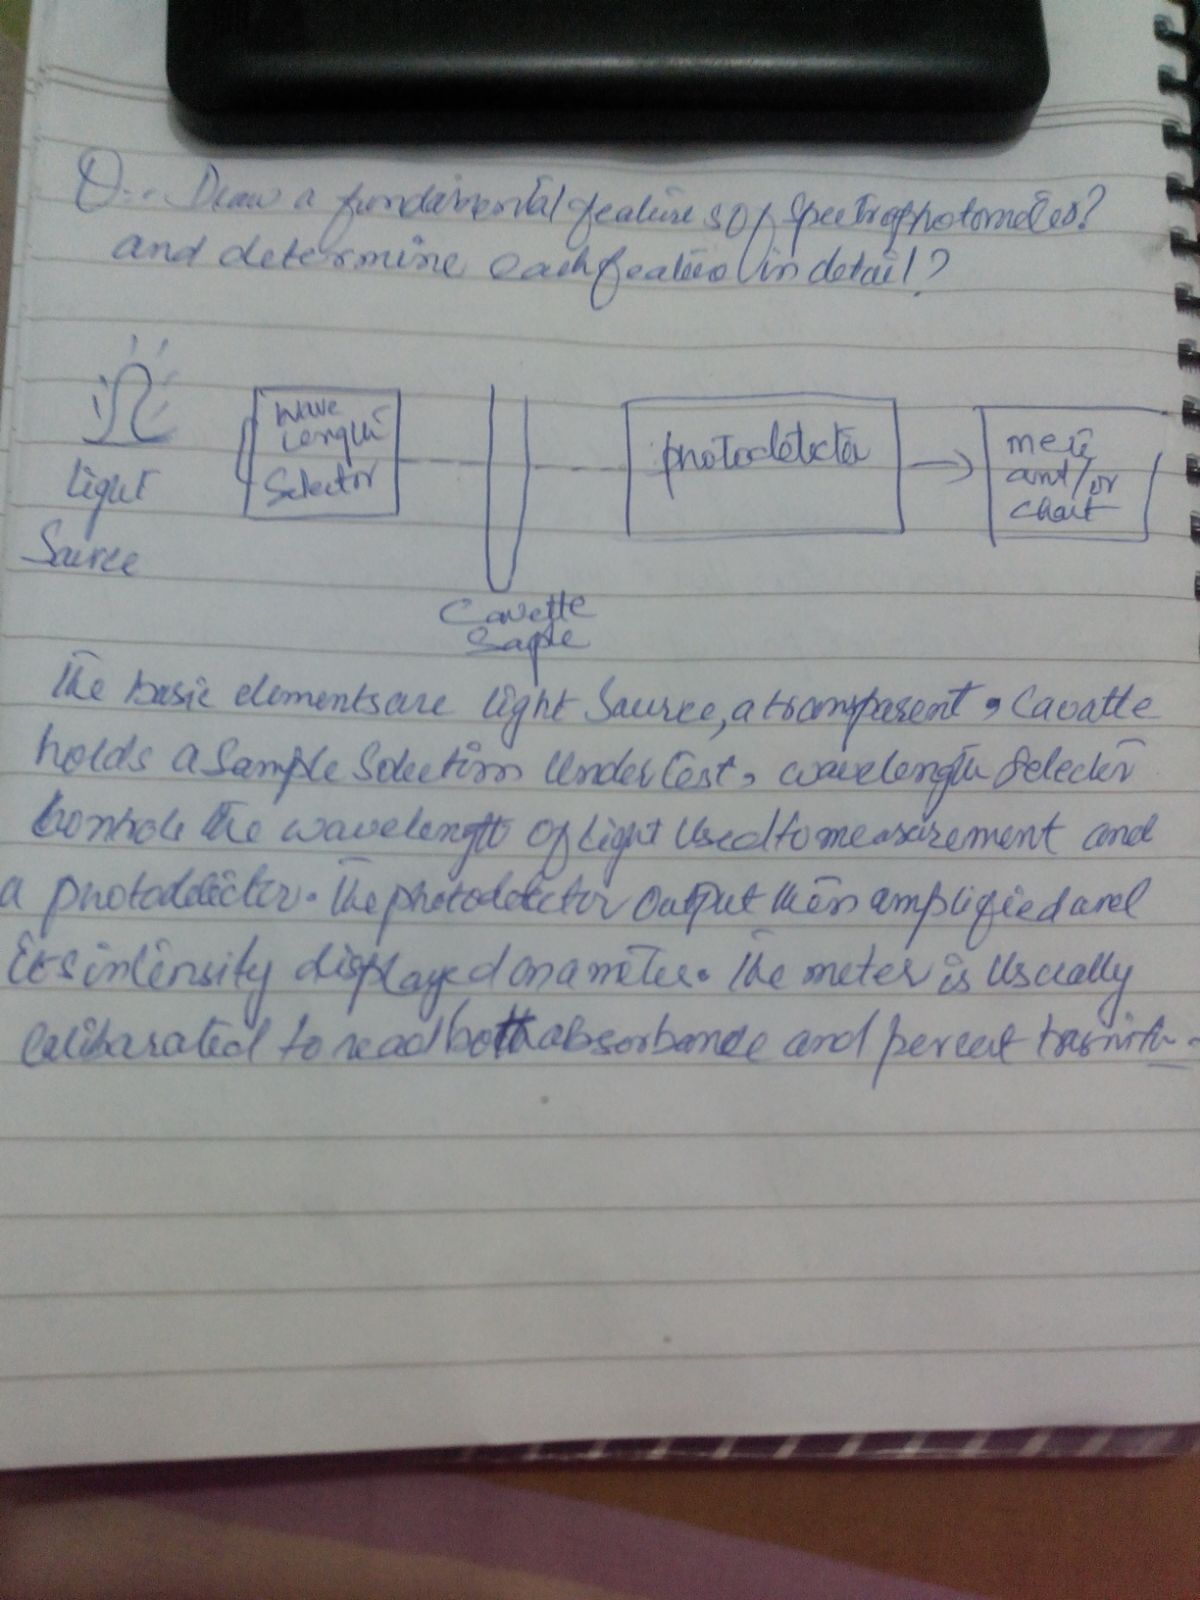 Q... Draw a fundamental features of spectrophotometer?
and determine each feature in detail?
wave
Length
Selector
photodetector
mete
and/or
chart
light
Source
Cavette
Saple
The basic elements are light Source, a transparent, Cavatte
holds a Sample Solection Under test, wavelength Selector
controls the wavelength of light Used to measurement and
a photodetector. The photodetector output then amplified and
its intensity displayed on a meter. The meter is Usually
calibarated to read both absorbance and percent